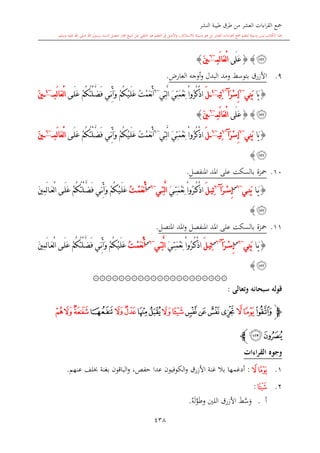 جمع القراءات العشر من طرق طيبة النشر
عَلَى ٱلْعَٰلَمِينَ ﴿١٢٢﴾
٩. الأزرق بتوسط ومد البدل وأوجه العارض.
﴿يَا بَنِي إِسْرَآئِيلَ اذْكُرُوا نِعْمَتِيَ الَّتِي أَنْعَمْتُ عَلَيْكُمْ وَأَنِّي فَضَّلْتُكُمْ عَلَى الْعَالَمِينَ
عَلَى الْعَالَمِينَ ﴿١٢٢﴾
﴿يَا بَنِي إِسْرَآئِيلَ اذْكُرُوا نِعْمَتِيَ الَّتِي أَنْعَمْتُ عَلَيْكُمْ وَأَنِّي فَضَّلْتُكُمْ عَلَى الْعَالَمِينَ
﴿١٢٢﴾
١٠. حمزة بالسكت على المد المنفصل.
﴿يَا بَنِي إِسْرَآئِيلَ اذْكُرُوا نِعْمَتِيَ الَّتِي أَنْعَمْتُ عَلَيْكُمْ وَأَنِّي فَضَّلْتُكُمْ عَلَى الْعَالَمِينَ
﴿١٢٢﴾
١١. حمزة بالسكت على المد المنفصل والمد المتصل.
﴿يَا بَنِي إِسْرَآئِيلَ اذْكُرُوا نِعْمَتِيَ الَّتِي أَنْعَمْتُ عَلَيْكُمْ وَأَنِّي فَضَّلْتُكُمْ عَلَى الْعَالَمِينَ
﴿١٢٢﴾
قوله سبحانه وتعالى :
﴿ وَاتَّقُوا يَوْمًا لَّا تَجْزِي نَفْسٌ عَن نَّفْسٍ شَيْئًا وَلَا يُقْبَلُ مِنْهَا عَدْلٌ وَلَا تَنفَعُهَا شَفَاعَةٌ وَلَا هُمْ
يُنصَرُونَ ﴿١٢٣﴾ ﴾
وجوه القراءات
١. يَوْمًا لَّا : أدغمها بلا غنة الأزرق والكوفيون عدا حفص، والباقون بغنة بخلف عنهم.
٢. شَيْئًا:
أ . وَسَّط الأزرق اللين وطَوَّلَهُ.
٤٣٨